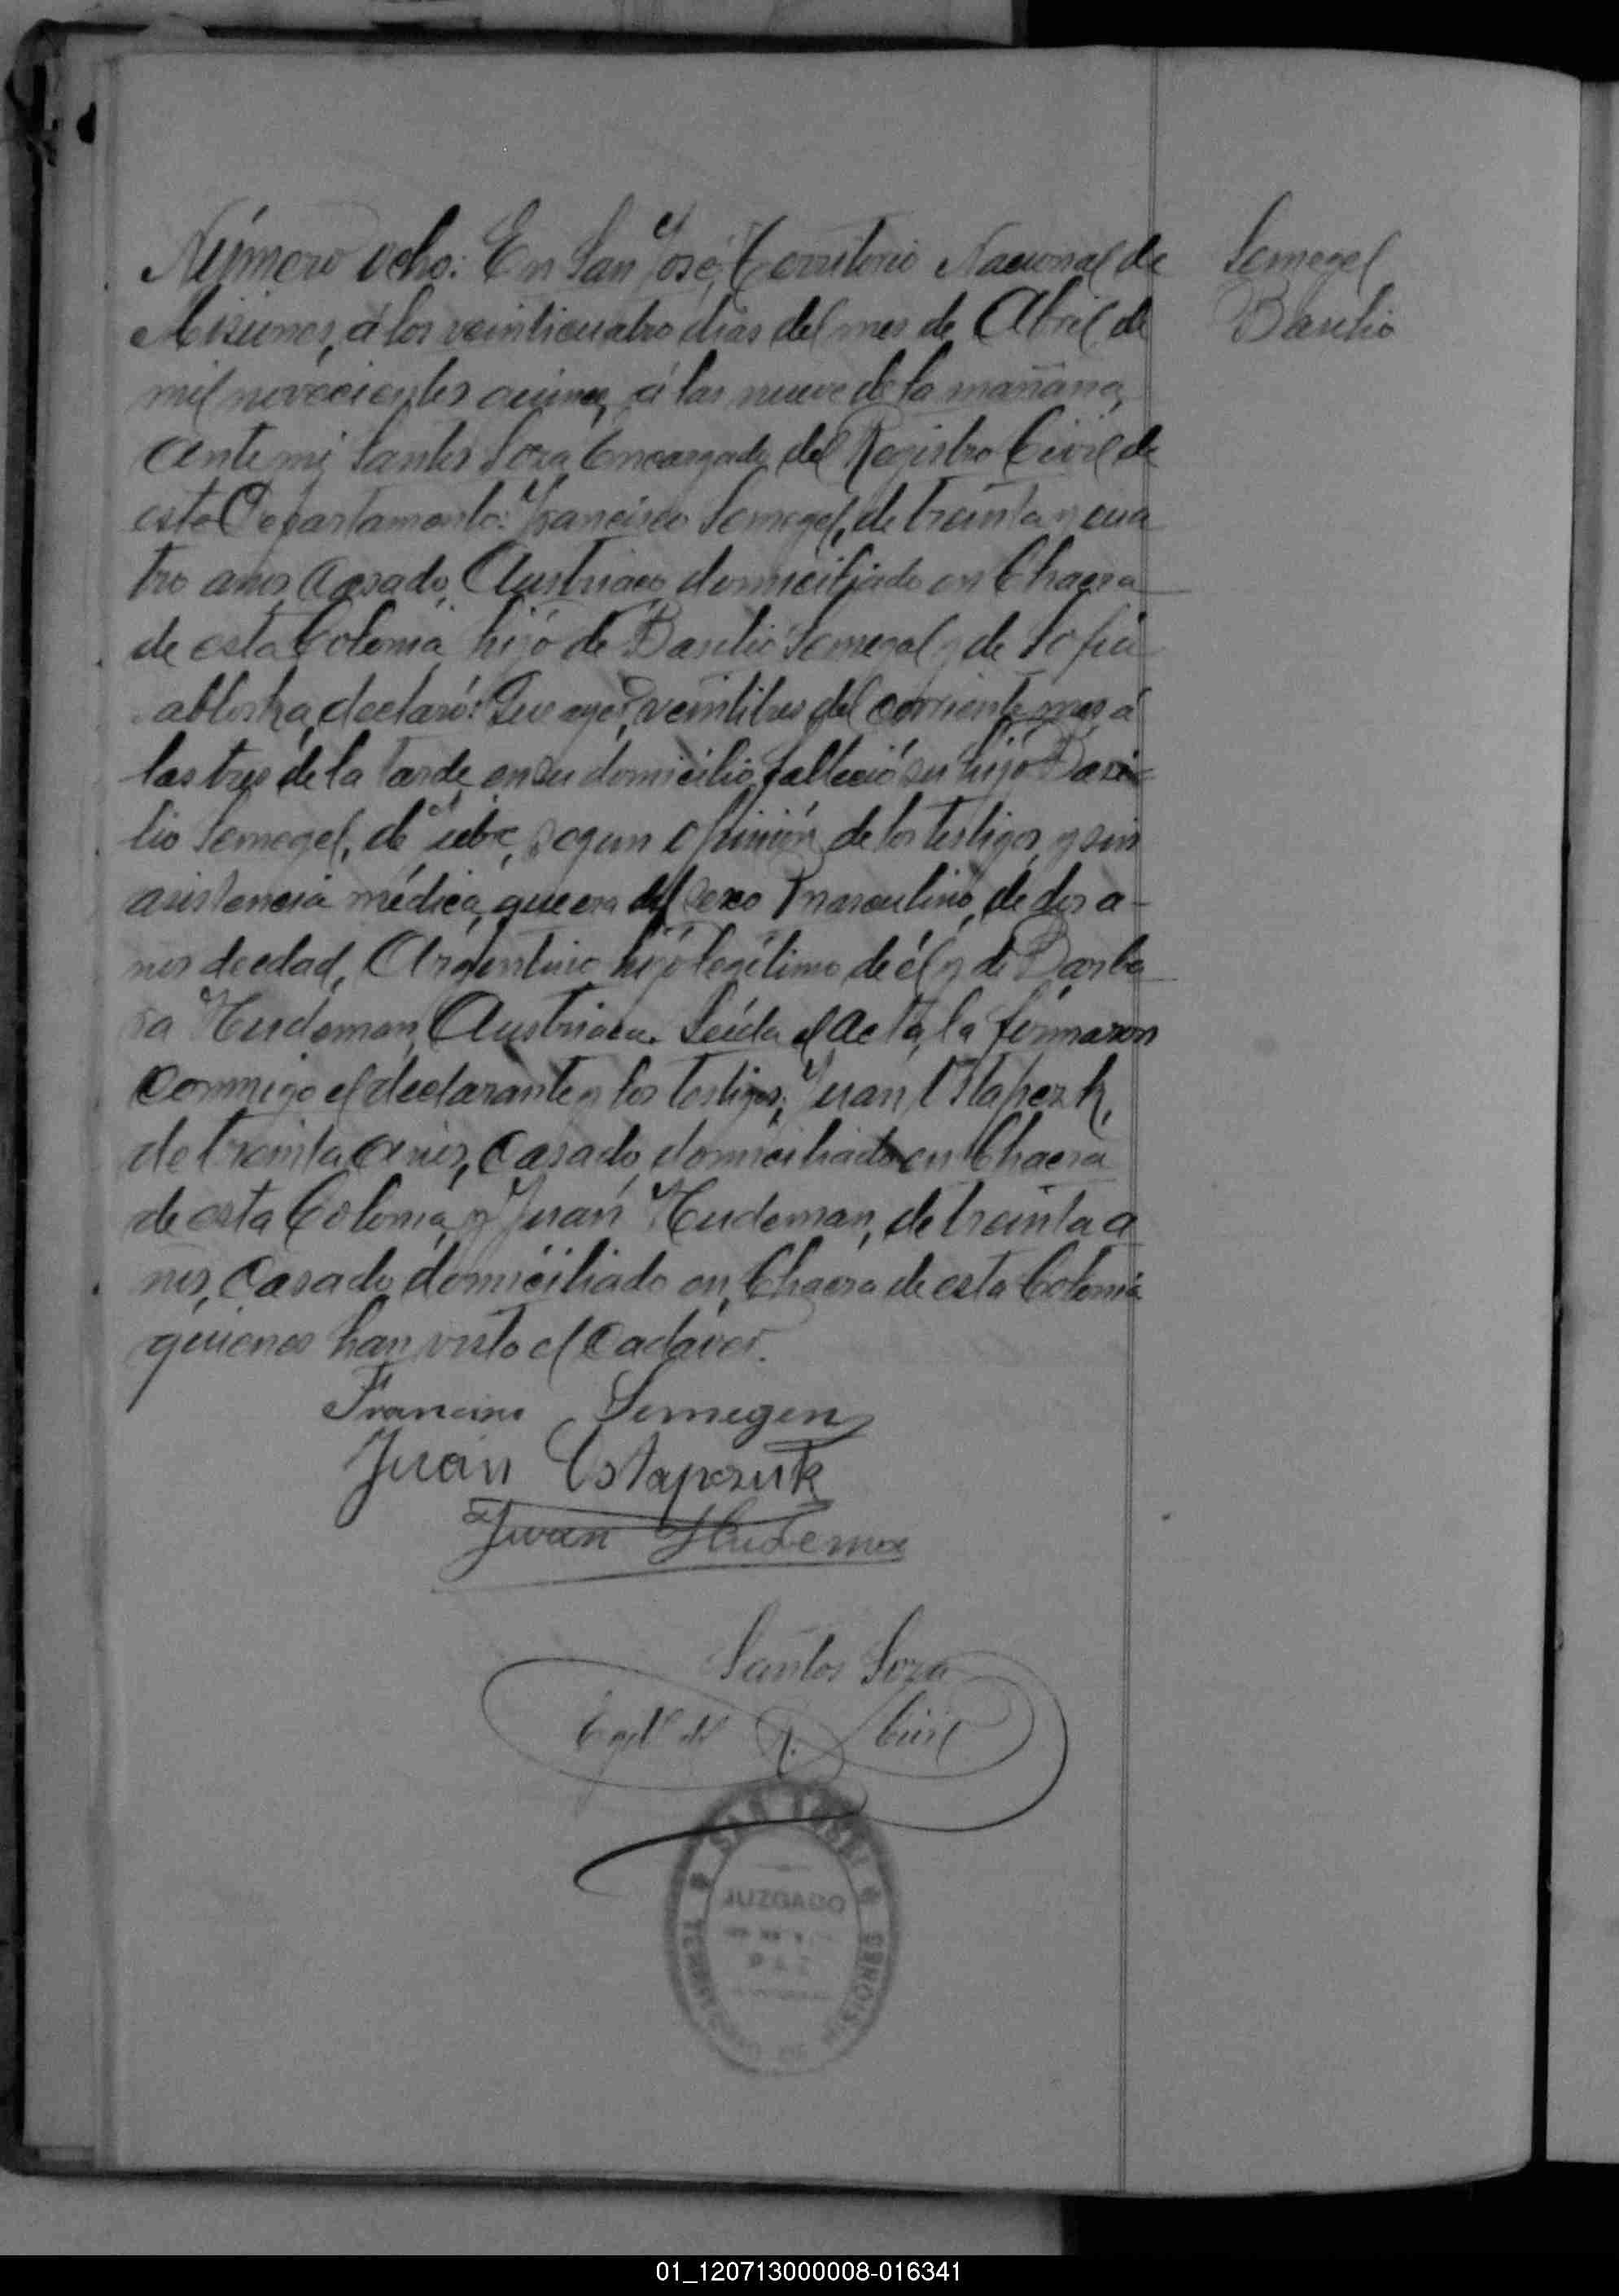 Número ocho: En San José, Territorio Nacional de
Misiones, á los veinticuatro dias del mes de Abril de
mil novecientos quince, á las nueve de la mañana,
ante mi Santos Soza Encargado del Registro Civil de
este Departamento: Francisco Semegel, de treinta y cua
tro anos, Casado, Austriaco, domiciliado en Chacra
de esta Colonia, hijo de Basilio Semegel y de Sofia
declaró: Que ayer, veintitres del corriente mes, á
las tres de la tarde, en su domicilio, falleció su hijo Basi-
lio Semegel, de segun opinión de los testigos, y sin
asistencia médica, que era del sexo masculino, de dos a-
nos de edad, Argentino, hijo legitimo de él y de Barba
ra Hudeman, Austriaca. Leída el acta, la firmaron
conmigo el declarante y los testigos; Juan
de treinta anos, Casado, domiciliado en Chacra
de esta Colonia, y Juan Hudeman, de treinta a
nos, Casado, domiciliado en Chacra de esta Colonia
quienes han visto el Cadáver.
Francisco Semegen
Juan Ostapczuk
Juan
Santos Soza
Egdo del R. Civil
SAN JOSÉ
JUZGADO
DE
PAZ
TERRITORIO DE MISIONES
Semegel
Basilio
01_120713000008-016341